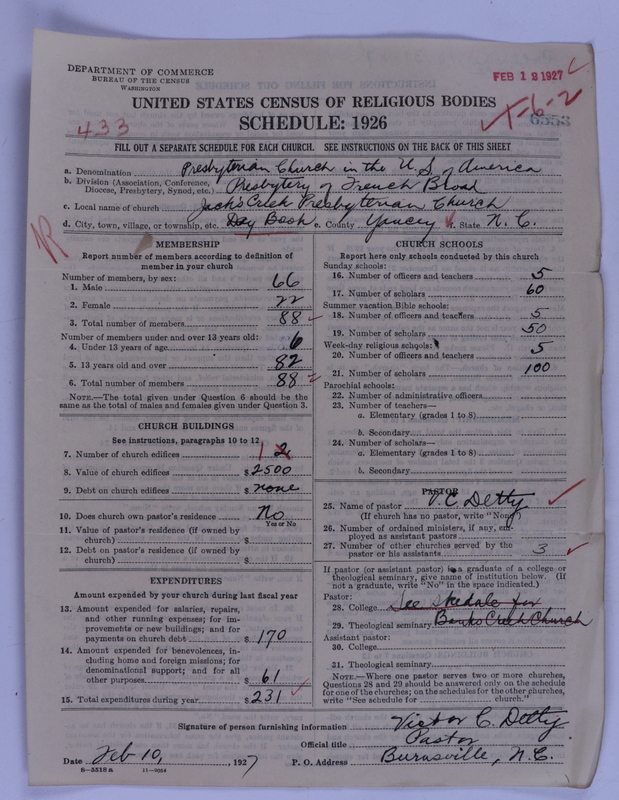 DEPARTMENT OF COMMERCE
BUREAU OF THE CENSUS
WASHINGTON
FEB 12 1927
UNITED STATES CENSUS OF RELIGIOUS BODIES
T-6-2
6553
433
SCHEDULE: 1926
FILL OUT A SEPARATE SCHEDULE FOR EACH CHURCH. SEE INSTRUCTIONS ON THE BACK OF THIS SHEET
a. Denomination Presbyterian Church in the U.S. of America
b. Division (Association, Conference, Diocese, Presbytery, Synod, etc.) Presbytery of French Broad
c. Local name of church Jack's Creek Presbyterian Church
d. City, town, village, or township, etc. Day Book e. County Yancey f. State N. C.
MEMBERSHIP
Report number of members according to definition of
member in your church
Number of members, by sex:
1. Male 66
2. Female 22
3. Total number of members 88
Number of members under and over 13 years old:
4. Under 13 years of age 6
5. 13 years old and over 82
6. Total number of members 88
NOTE.—The total given under Question 6 should be the
same as the total of males and females given under Question 3.
CHURCH BUILDINGS
See instructions, paragraphs 10 to 12
7. Number of church edifices 1 2
8. Value of church edifices $ 2500
9. Debt on church edifices $ none
10. Does church own pastor's residence No
Yes or No
11. Value of pastor's residence (if owned by
church) $
12. Debt on pastor's residence (if owned by
church) $
EXPENDITURES
Amount expended by your church during last fiscal year
13. Amount expended for salaries, repairs,
and other running expenses; for im-
provements or new buildings; and for
payments on church debt $ 170
14. Amount expended for benevolences, in-
cluding home and foreign missions; for
denominational support; and for all
other purposes $ 61
15. Total expenditures during year $ 231
CHURCH SCHOOLS
Report here only schools conducted by this church
Sunday schools:
16. Number of officers and teachers 5
17. Number of scholars 60
Summer vacation Bible schools:
18. Number of officers and teachers 5
19. Number of scholars 50
Week-day religious schools:
20. Number of officers and teachers 5
21. Number of scholars 100
Parochial schools:
22. Number of administrative officers
23. Number of teachers—
a. Elementary (grades 1 to 8)
b. Secondary
24. Number of scholars—
a. Elementary (grades 1 to 8)
b. Secondary
PASTOR
25. Name of pastor V. C. Detty
(If church has no pastor, write "None")
26. Number of ordained ministers, if any, em-
ployed as assistant pastors
27. Number of other churches served by the
pastor or his assistants 3
If pastor (or assistant pastor) is a graduate of a college or
theological seminary, give name of institution below. (If
not a graduate, write "No" in the space indicated.)
Pastor:
28. College See schedule for
29. Theological seminary Banks Creek Church
Assistant pastor:
30. College
31. Theological seminary
NOTE.—Where one pastor serves two or more churches,
Questions 28 and 29 should be answered only on the schedule
for one of the churches; on the schedules for the other churches,
write "See schedule for ........ church."
Signature of person furnishing information Victor C. Detty
Official title Pastor
Date Feb 10, 1927 P. O. Address Burnsville, N.C.
8-5518 a 11-9064